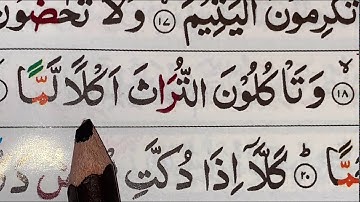 تُكْرِمُوْنَ الْيَتِيْمَ ۙ‏﴿۱۷﴾ وَلَا تَحٰٓضُّوْنَ
﴿۱۸﴾ ۙ وَتَاْكُلُوْنَ التُّرَاثَ اَكْلًا لَّمًّا
﴿۲۰﴾ ؕ كَلَّاۤ اِذَا دُكَّتِ